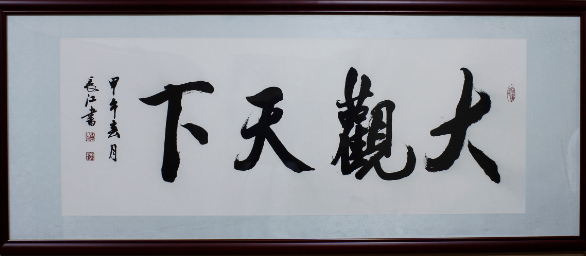 大觀天下
甲午亥月
長江書